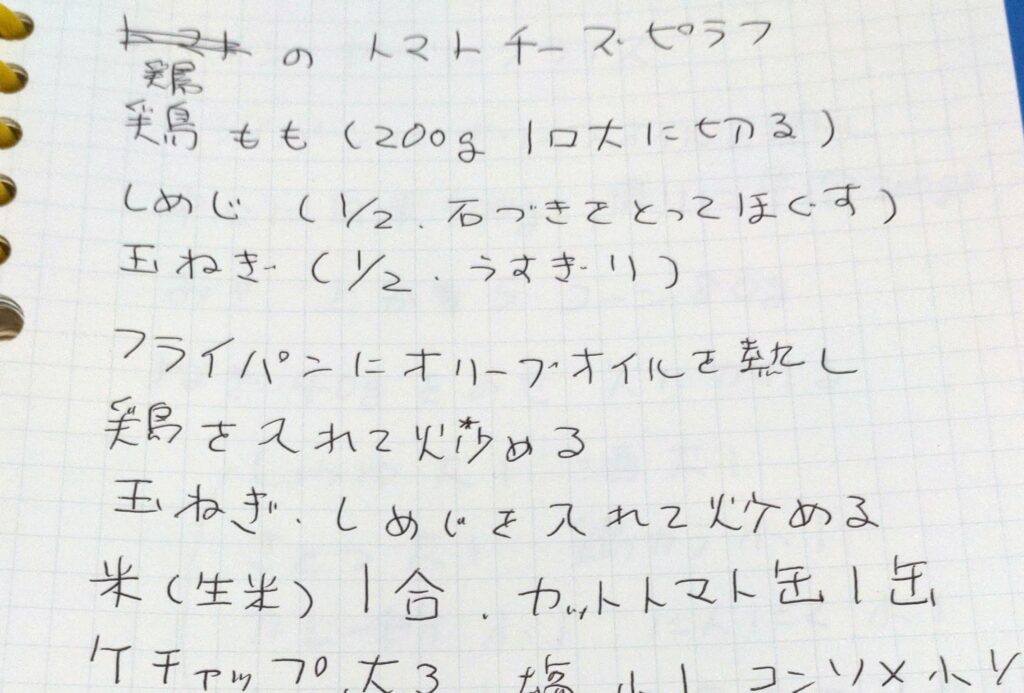 トマト の トマトチーズピラフ
鶏
鶏もも (200g 1口大に切る)
しめじ (1/2. 石づきをとってほぐす)
玉ねぎ (1/2. うすぎり)
フライパンにオリーブオイルを熱し
鶏を入れて炒める
玉ねぎ. しめじを入れて炒める
米(生米) 1合. カットトマト缶1缶
ケチャップ. 大3 塩小1 コンソメ小